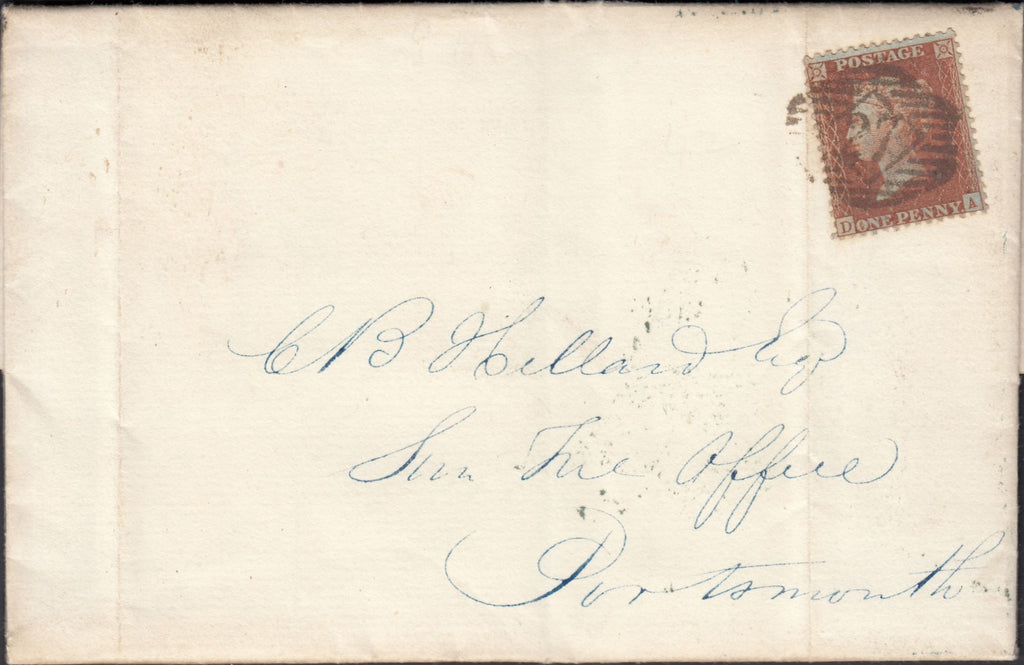 POSTAGE
D ONE PENNY A
C B Hellard Esqr
Sun Fire Office
Portsmouth